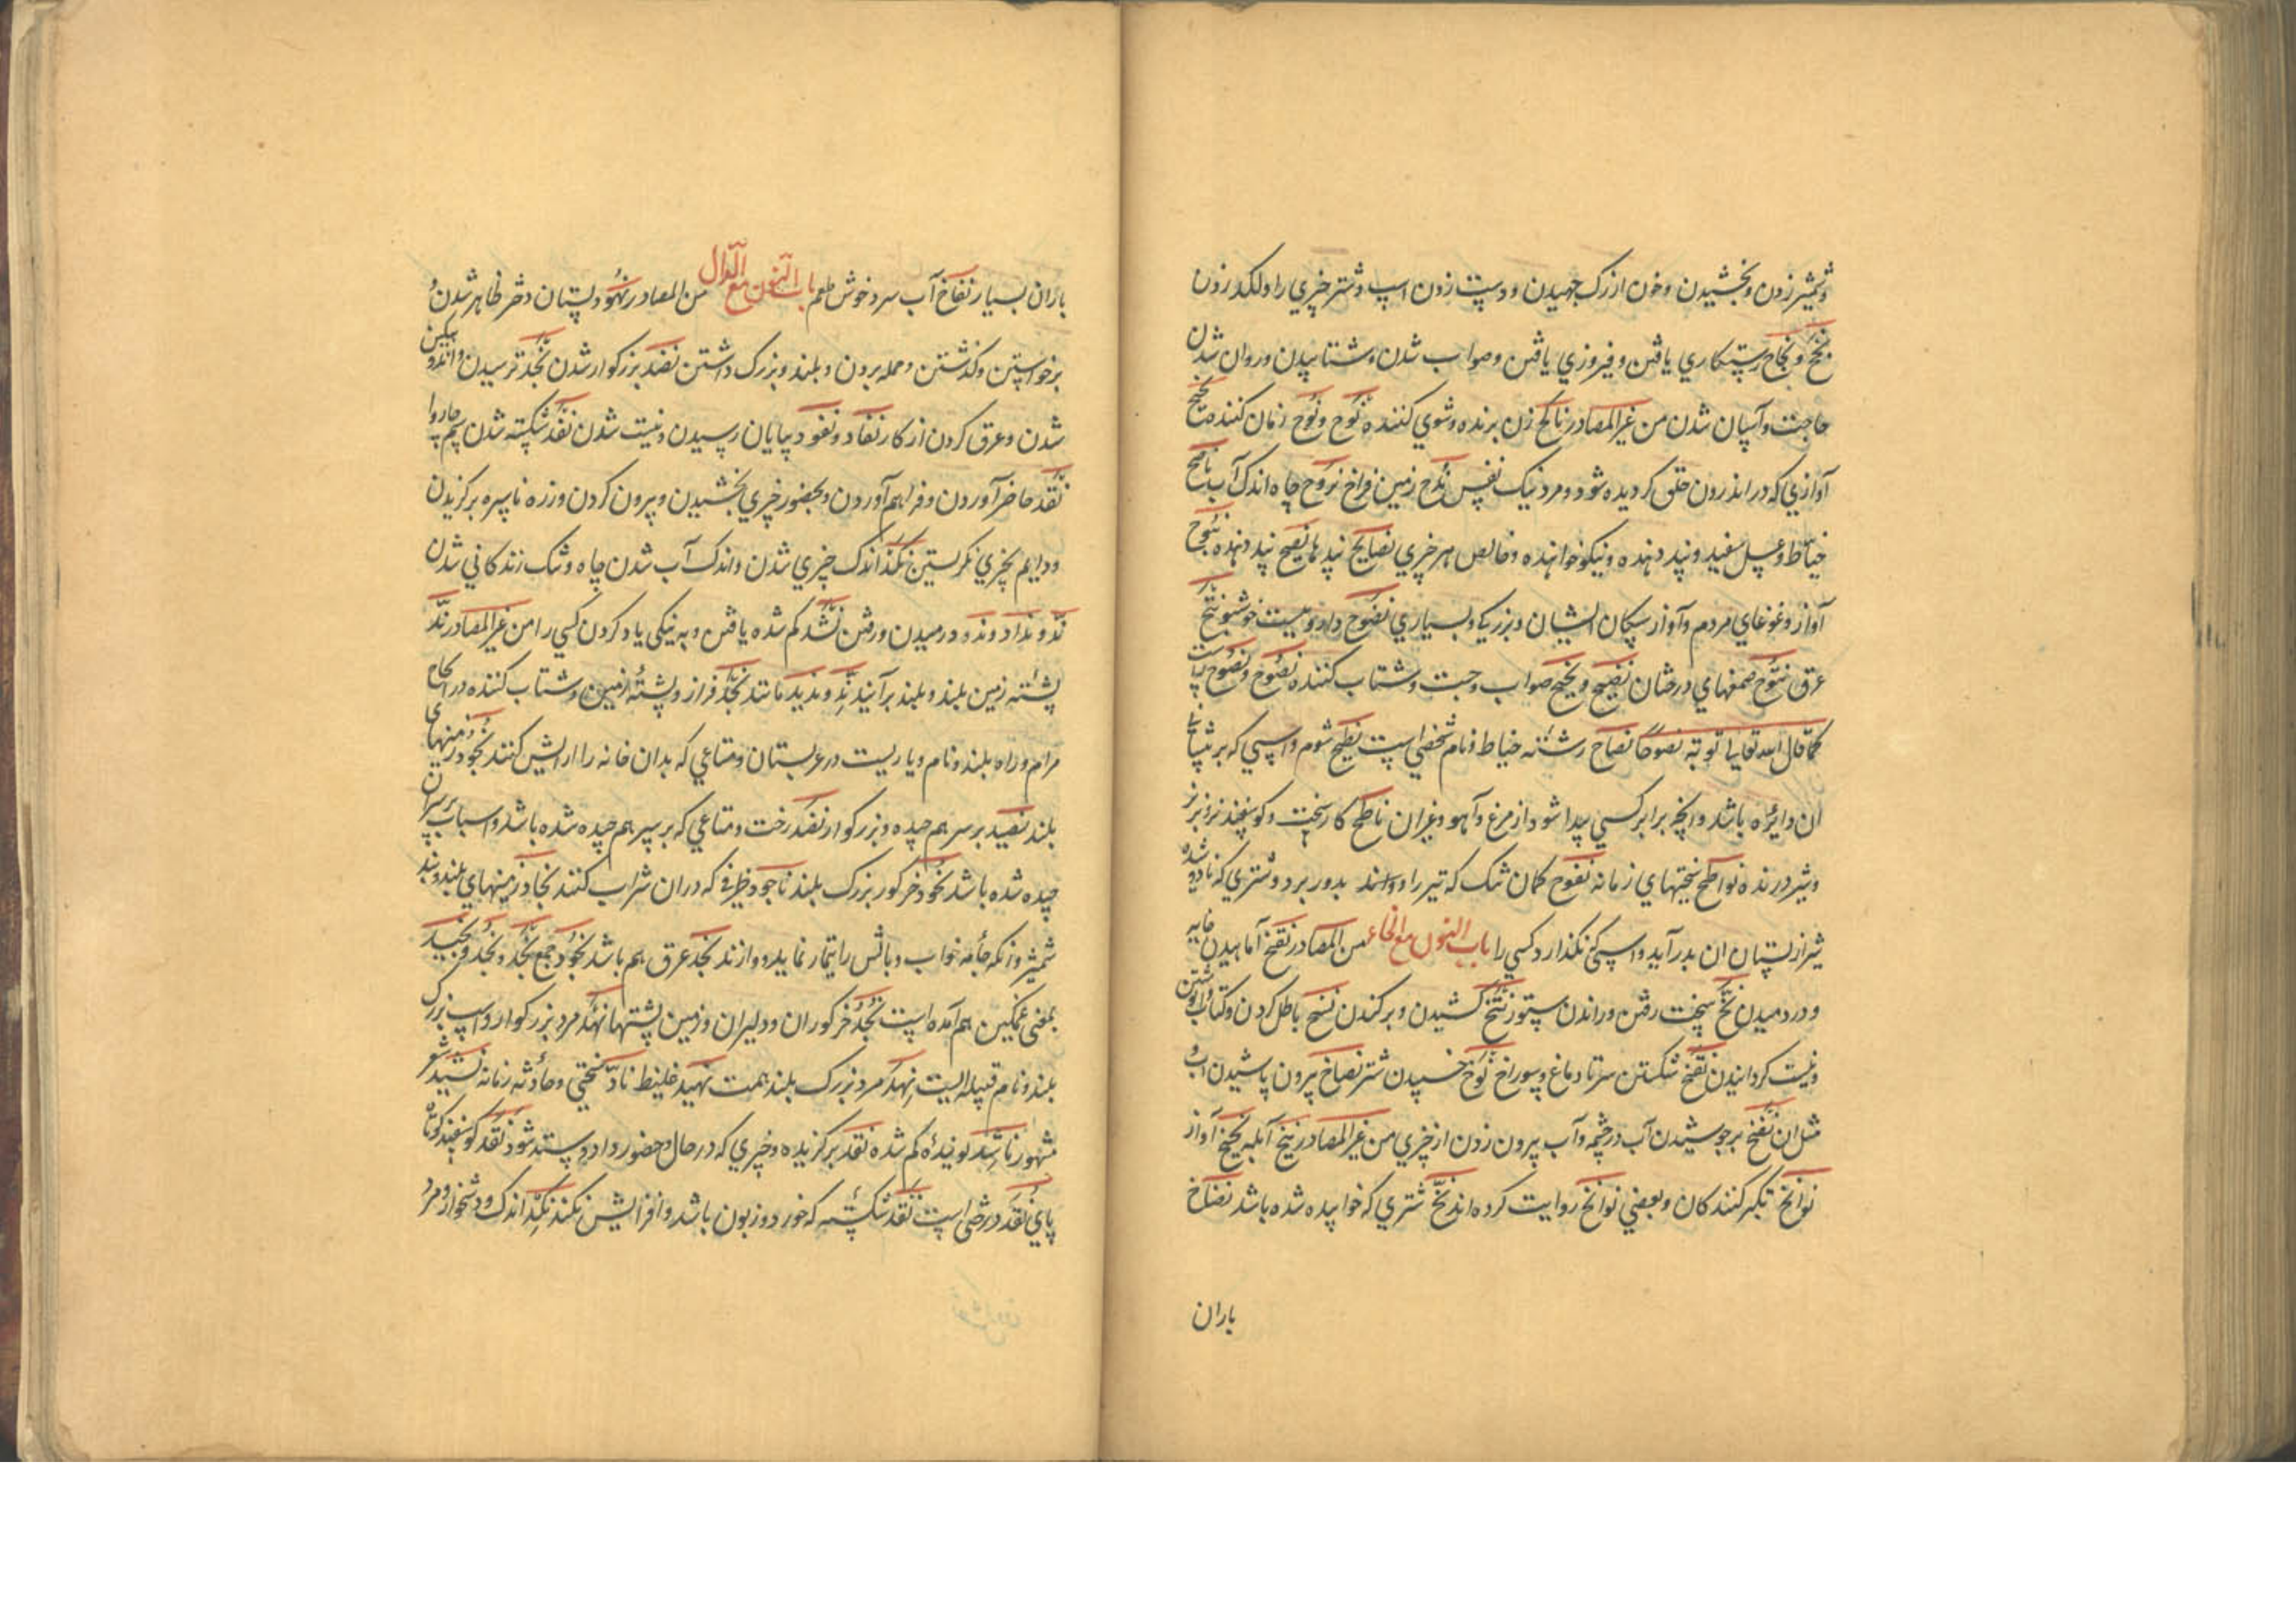 و شمشیر زدن و بخشیدن و خون از رک جهیدن و دست زدن اسپ و شتر چیزی را و لکد زدن
نجح و نجاح رستکاری یافتن و فیروزی یافتن و صواب شدن و شتابیدن و روان شدن
حاجت و آسان شدن من غیر المصادر ناکح زن برنده و شوی کننده نوح و نوح زنان کننده نحیح
آوازی که در اندرون حلق کردیده شود و مرد نیک نفس ندح زمین فراخ نزوح چاه اندک آب ناصح
خیاط و عسل سفید و پند دهنده و نیکو خواهنده و خالص هر چیزی نصایح پندها نصیح پند دهنده نبوح
آواز و غوغای مردم و آواز سکان ایشان و بزرکی و بسیاری نضوح داروییست خوشبو نتح
عرق نتوح صمغهای درختان نصیح و نجیح صواب و جست و شتاب کننده نصوح و نصوح راست
کما قال الله تعالی توبة نصوحا نصاح رشته خیاط و نام شخصی است نطیح شوم و اسپی که بر پیشانی
ان دایره باشد و آنچه برابر کسی پیدا شود از مرغ و آهو و غیران ناطح کار سخت و کوسفند نر و بز نر
و شیر درنده نواطح سختیهای زمانه نفوح کمان تنک که تیر را دور بدور برد و شتری که نادوشیده
شیر از پستان ان بدر آید و اسپی نکذارد کسی را باب النون مع الخاء من المصادر نفخ آماهیدن خایه
و در دمیدن نخ سخت رفتن و راندن ستور نتخ کشیدن و برکندن نسخ باطل کردن و کتاب نوشتن
و نیست کردانیدن نقخ شکستن سر تا دماغ و سوراخ نوخ خسپیدن شتر نضاخ بیرون پاشیدن آب و
مثل ان نضخ برجوشیدن آب در چشمه و آب بیرون زدن از چیزی من غیر المصادر نبخ آبله نخیخ آواز
نوابخ تکبر کنندکان و بعضی نوانخ روایت کرده اند نخ شتری که خوابیده شده باشد نضاخ
باران
باران بسیار نقاخ آب سرد خوش طعم باب النون مع الدال من المصادر نهود پستان دختر ظاهر شدن و
برخواستن و کذشتن و حمله بردن و بلند و بزرک داشتن نضد بزرکوار شدن نجد ترسیدن و اندوهکین
شدن و عرق کردن از کار نفاد و نفود بپایان رسیدن و نیست شدن نقد شکسته شدن سم چاروا
نقد حاضر آوردن و فراهم آوردن و بحضور چیزی بخشیدن و بیرون کردن و زره ناسره برکزیدن
و دایم بچیزی نکریستن نکد اندک چیزی شدن و اندک آب شدن چاه و تنک زندکانی شدن
ند و نداد و ندود رمیدن و رفتن نشد کم شده یافتن و به نیکی یاد کردن کسی را من غیر المصادر ند
پشته زمین بلند و بلند برآیند ند و ندید مانند نجد فراز و پشته زمین و شتاب کننده در انجاح
مرام و راه بلند و نام دیاریست در عربستان و متاعی که بدان خانه را ارایش کنند نجود زمینهای
بلند نضید بر سر هم چیده و بزرکوار نضد رخت و متاعی که بر سر هم چیده شده باشد و اسباب بر سر ان
چیده شده باشد نجود خر کور بزرک بلند ناجود ظرفی که دران شراب کنند نجاد زمینهای بلند و بند
شمشیر و انکه جامه خواب و بالش را تیمار نماید و دوازند نجد عرق هم باشد نجود جمع نجد و نجد و نجید
بمعنی غمکین هم آمده است نجد خر کوران و دلیران و زمین پشتها نهد مرد بزرکوار و اسپ بزرک
بلند و نام قبیله ایست نهد مرد بزرک بلند همت نهید غلیظ ناد سختی و حادثه زمانه نشید شعر
مشهور ناشد کم شده نقد برکزیده و چیزی که در حال و حضور داد و ستد شود نقد کوسفند کوتاه
پای نقد درختی است نقد شکسته که خورد و زبون باشد و افزایش نکند نکد اندک و دشخوار و مرد